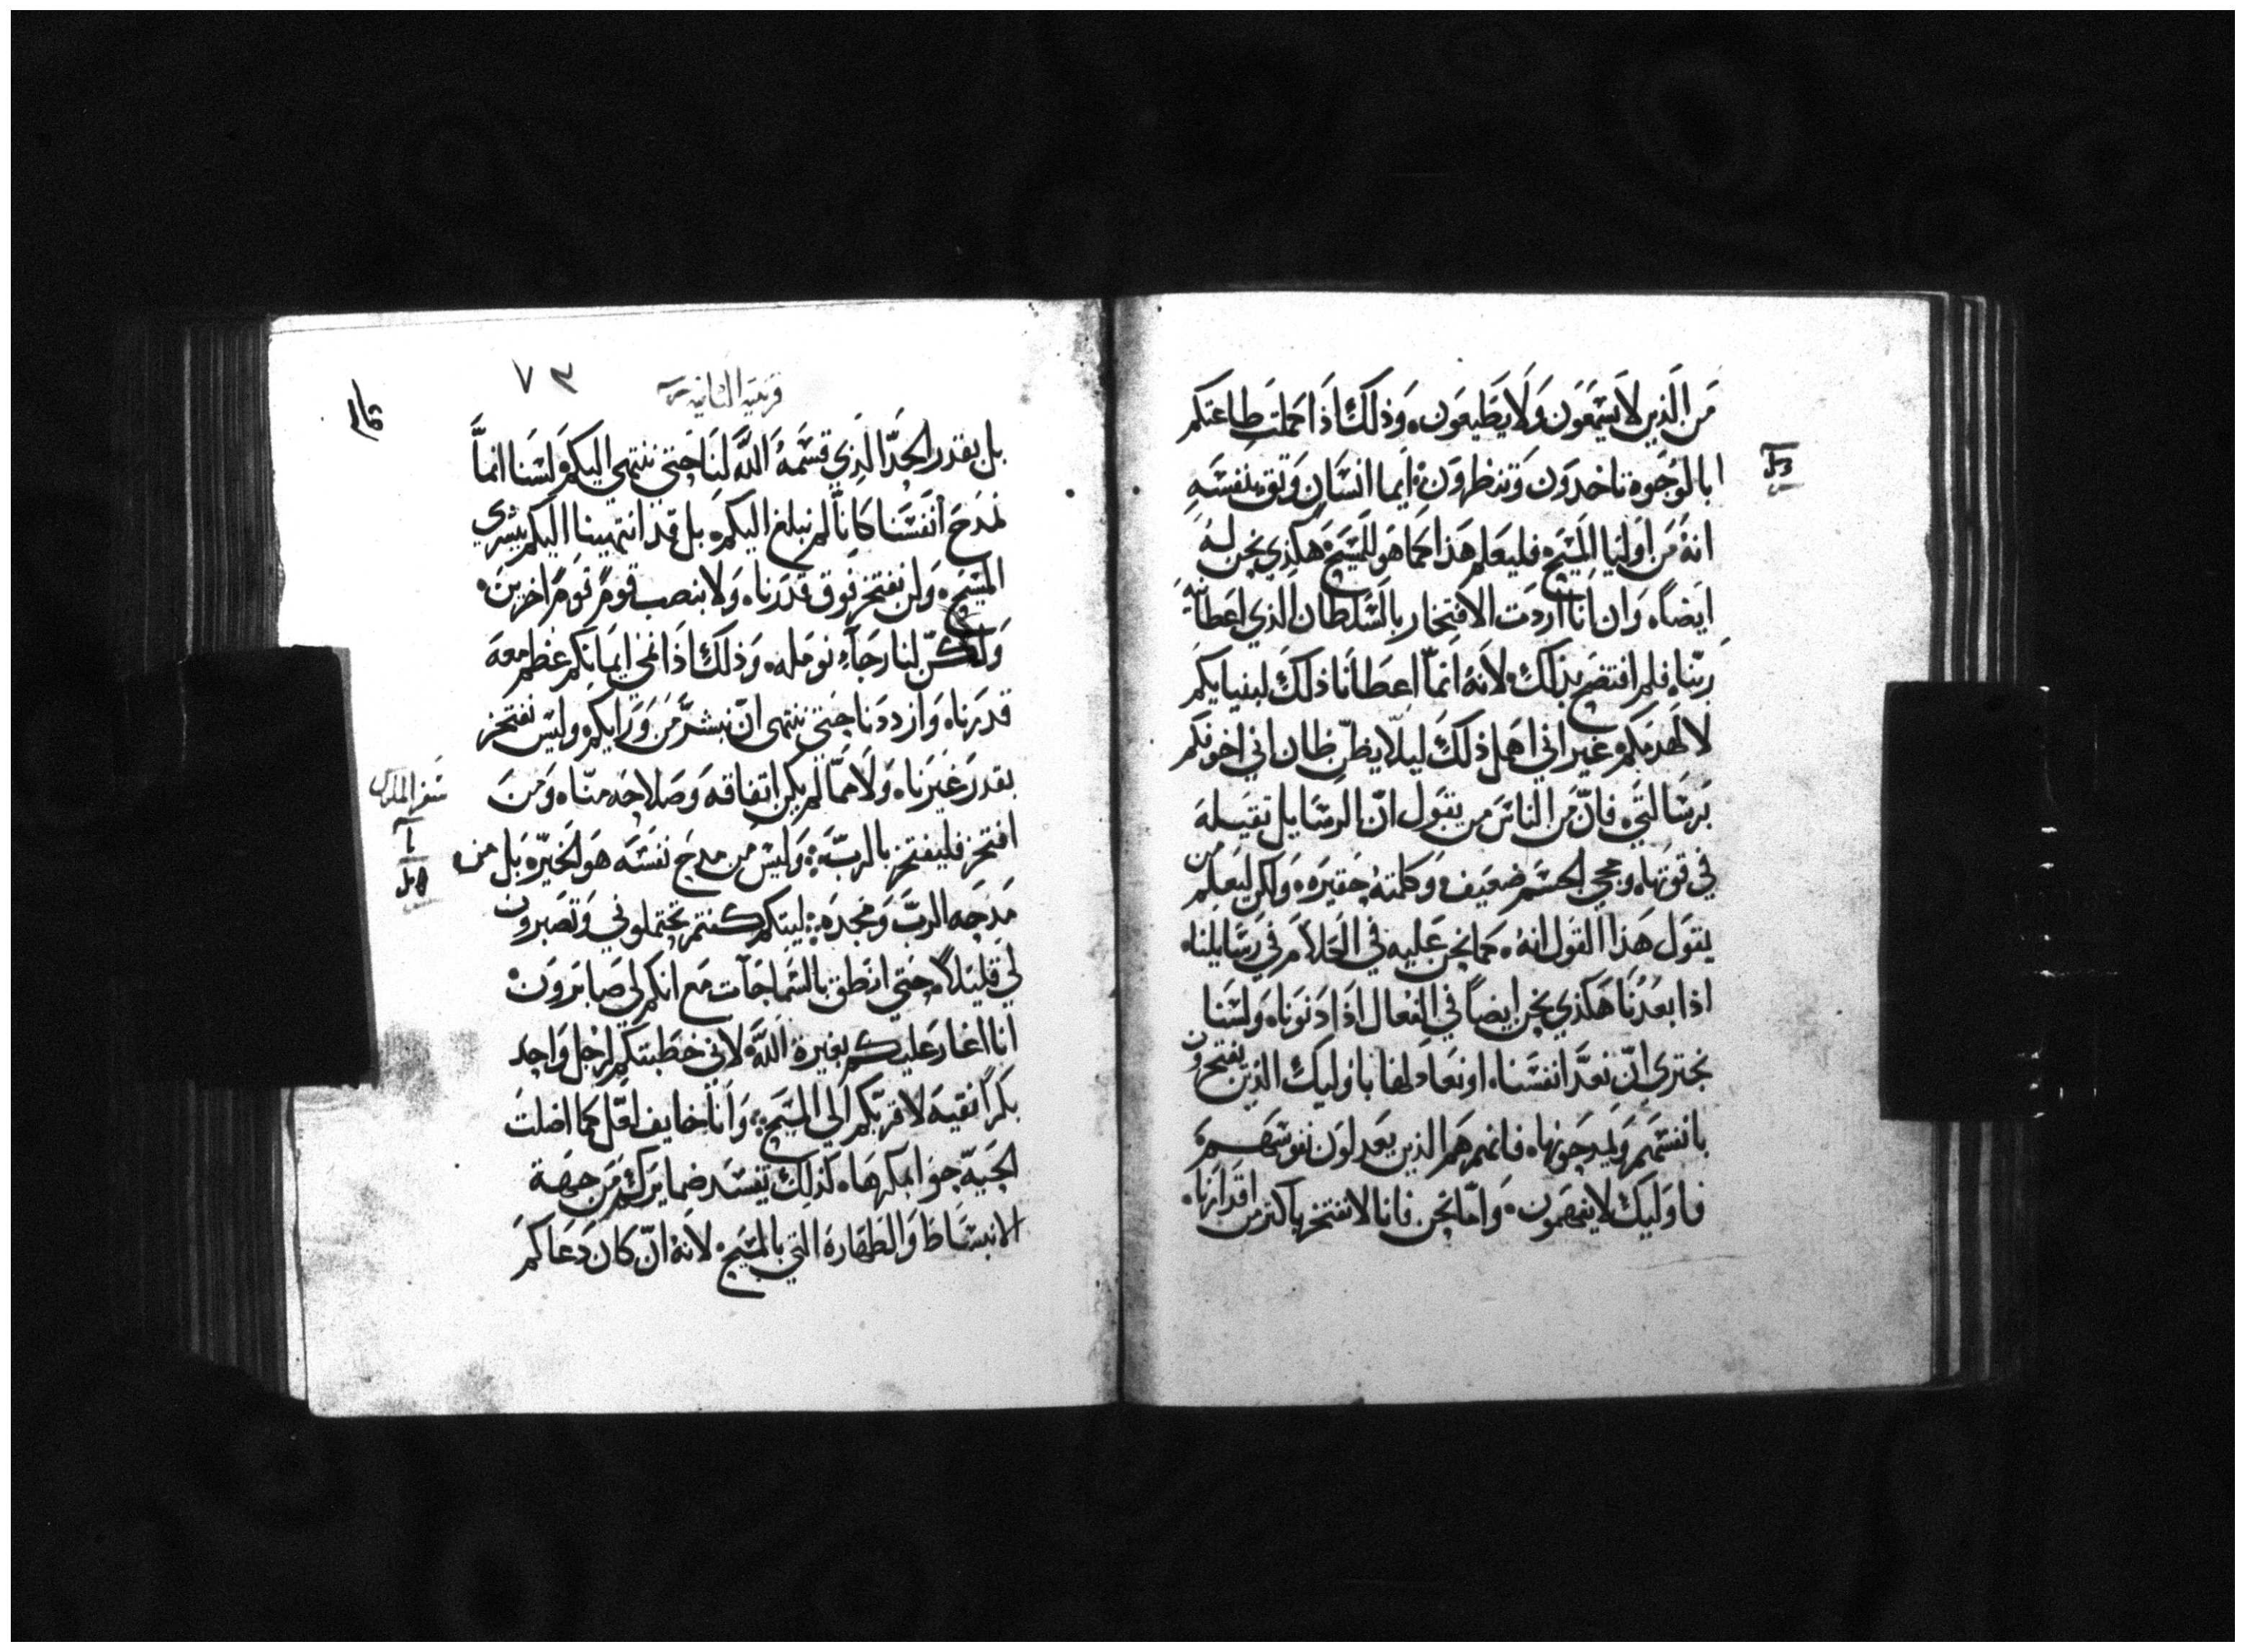 من الذين لا يسمعون ولا يطيعون، وذلك اذا كملت طاعتكم
ابالوجوه تاخدون وتنظرون ايما انسان وثق بنفسه
انه من اوليا المسيح فليعلم هذا كما هو للمسيح هكذي نحن له
ايضاه وان انا اردت الافتخار بالسلطان الذي اعطانيه
ربناه فلم افتضح بذلك لانه انما اعطانا ذلك لبنيايكم
لا لهدمكم غير اني اهمل ذلك ليلا يظن ظان اني اخوفكم
برسالتي فان من الناس من يقول ان الرسايل ثقيله
في قوتهاه ومجي الجسم ضعيف وكلمته حقيره ولكن ليعلم من
يقول هذا القول انه كما نحن عليه في الكلام في رسايلناه
اذا بعدنا هكذي نحن ايضا في الفعال اذا دنوناه ولسنا
نجتري ان نعد انفسناه او نعادلها باوليك الذين يفتخرون
بانفسهم ويمدحونهاه فانهم هم الذين يعدلون نفوسهم
فاوليك لا يفهمون، واما نحن فانا لا نفتخر باكثر من اقدارناه
قرنتيه الثانيه
٧٣
بل بقدر الحد الذي قسمه الله لنا حتي ننتهي اليكم ولسنا انما
نمدح انفسنا كانا لم نبلغ اليكم، بل قد انتهينا اليكم ببشري
المسيح، ولن نفتخر فوق قدرناه ولا بنصب قوم قوم اخرين،
ولكن لنا رجاء نومله، وذلك اذا نمي ايمانكم عظم معه
قدرناه وازددنا حتي ننتهي ان نبشر من ورايكم وليس نفتخر
بقدر غيرناه ولا مما لم يكن اتفاقه وصلاحه مناه ومن
افتخر فليفتخر بالرب، وليس من مدح نفسه هو الخيره بل من
مدحه الرب ومجده، ليتكم كنتم تحتملوني وتصبرون
لي قليلا، حتي انطق بالسماجات مع انكم لي صابرون
انا اغار عليكم بغيرة الله لاني خطبتكم لرجل واحد
بكرا نقيه لاقربكم الي المسيح، وانا خايف لعل كما اضلت
الحيه حوا بمكرهاه كذلك تفسد ضمايركم من جهة
الانبساط والطهاره التي بالمسيح لانه ان كان دعاكم
سفر الملوك